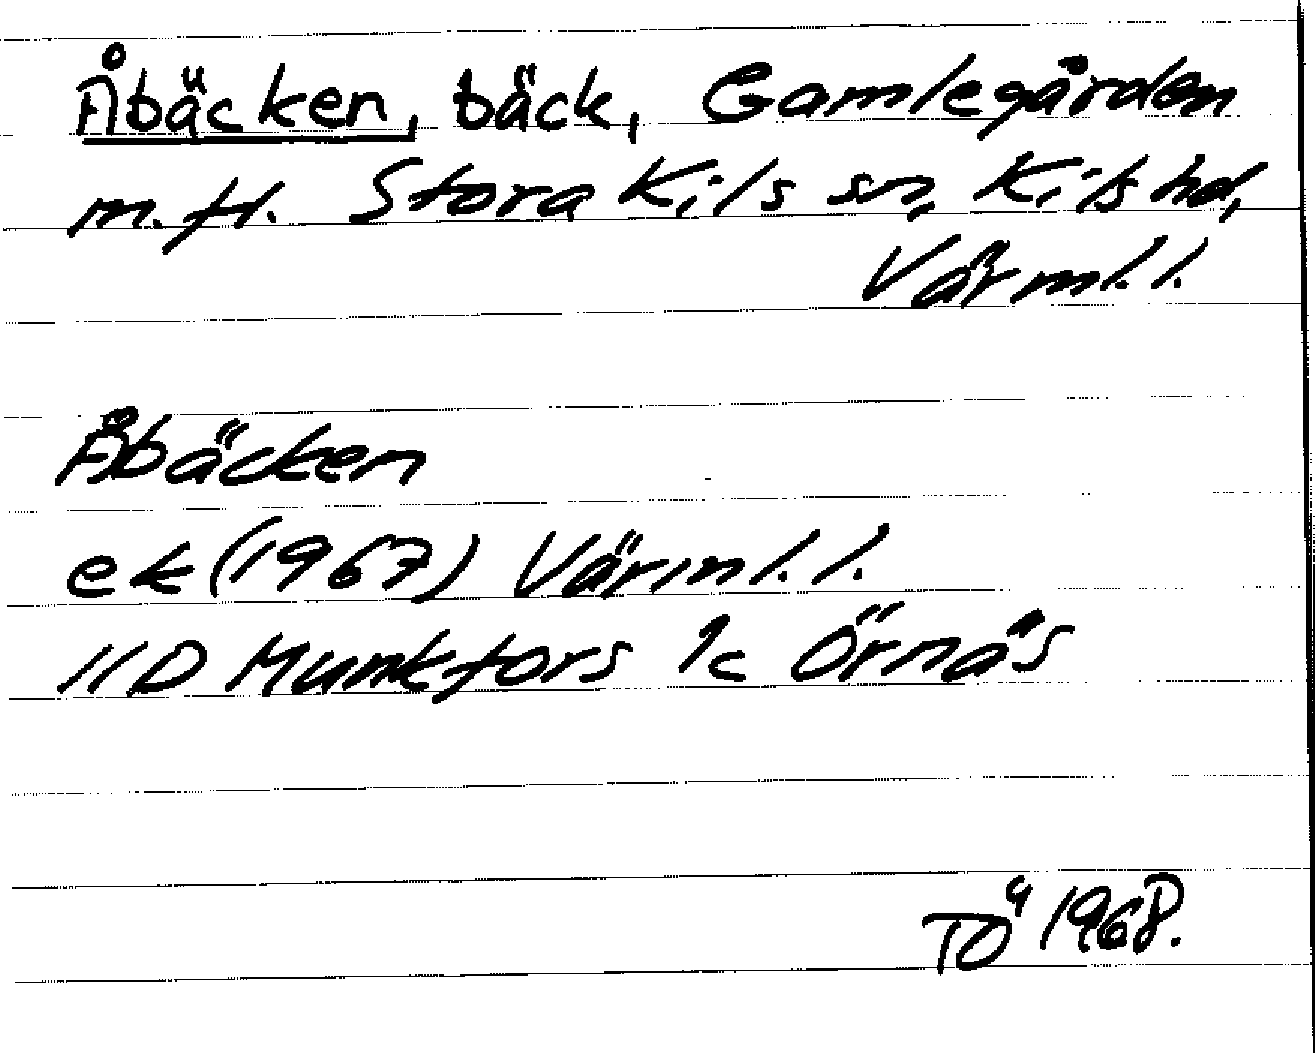 Åbäcken, bäck, Gamlegården
m.fl. Stora Kils sn, Kils hd,
Värml. l.
Åbäcken
ek (1967) Värml. l.
11D Munkfors 1c Örnäs
TÖ 1968.